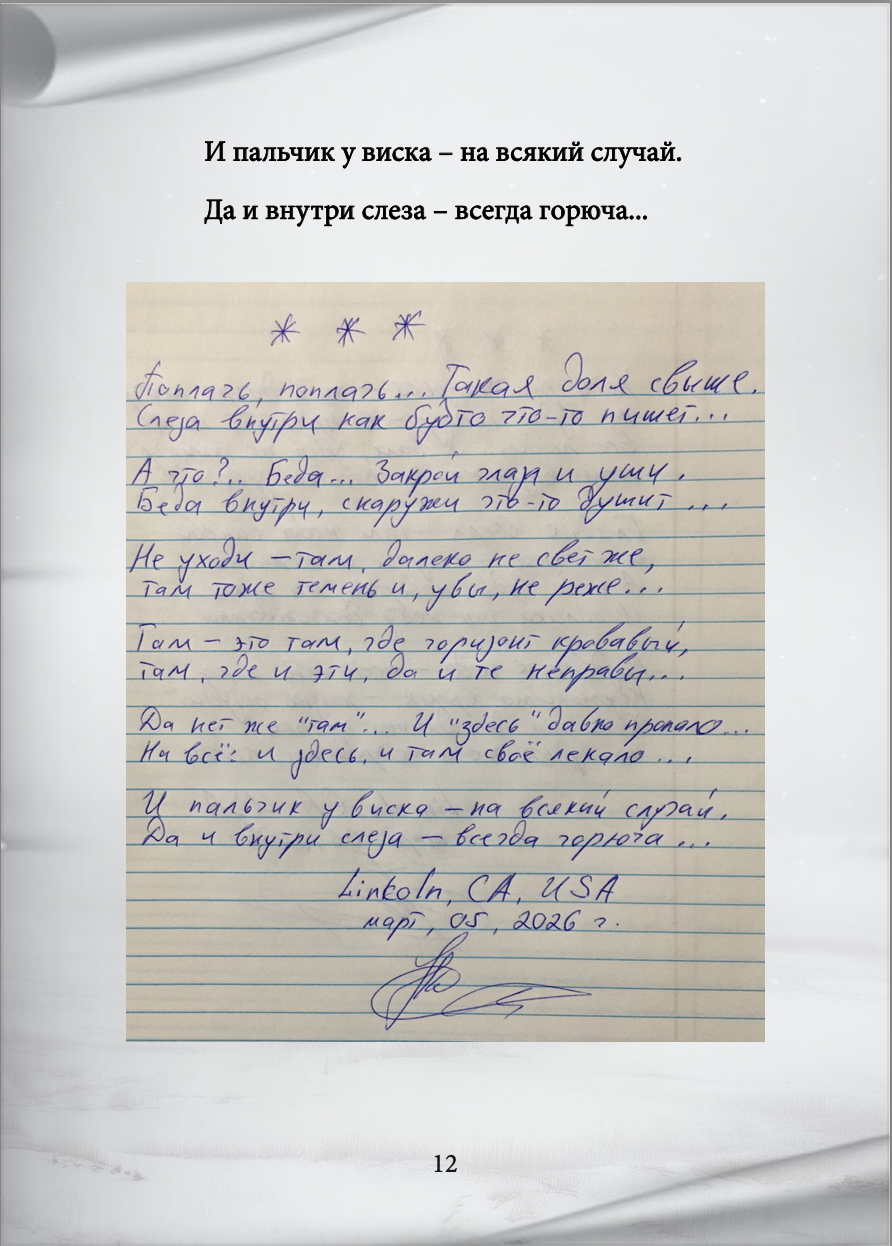 И пальчик у виска – на всякий случай.
Да и внутри слеза – всегда горюча...
* * *
Поплачь, поплачь... Такая доля свыше.
Слеза внутри как будто что-то пишет...
А что?.. Беда... Закрой глаза и уши.
Беда внутри, снаружи что-то душит...
Не уходи – там, далеко не свет же,
там тоже темень и, увы, не реже...
Там – это там, где горизонт кровавый,
там, где и эти, да и те неправы...
Да нет же "там"... И "здесь" давно пропало...
На всё: и здесь, и там своё лекало...
И пальчик у виска – на всякий случай.
Да и внутри слеза – всегда горюча...
Linkoln, CA, USA
март, 05, 2026 г.
12